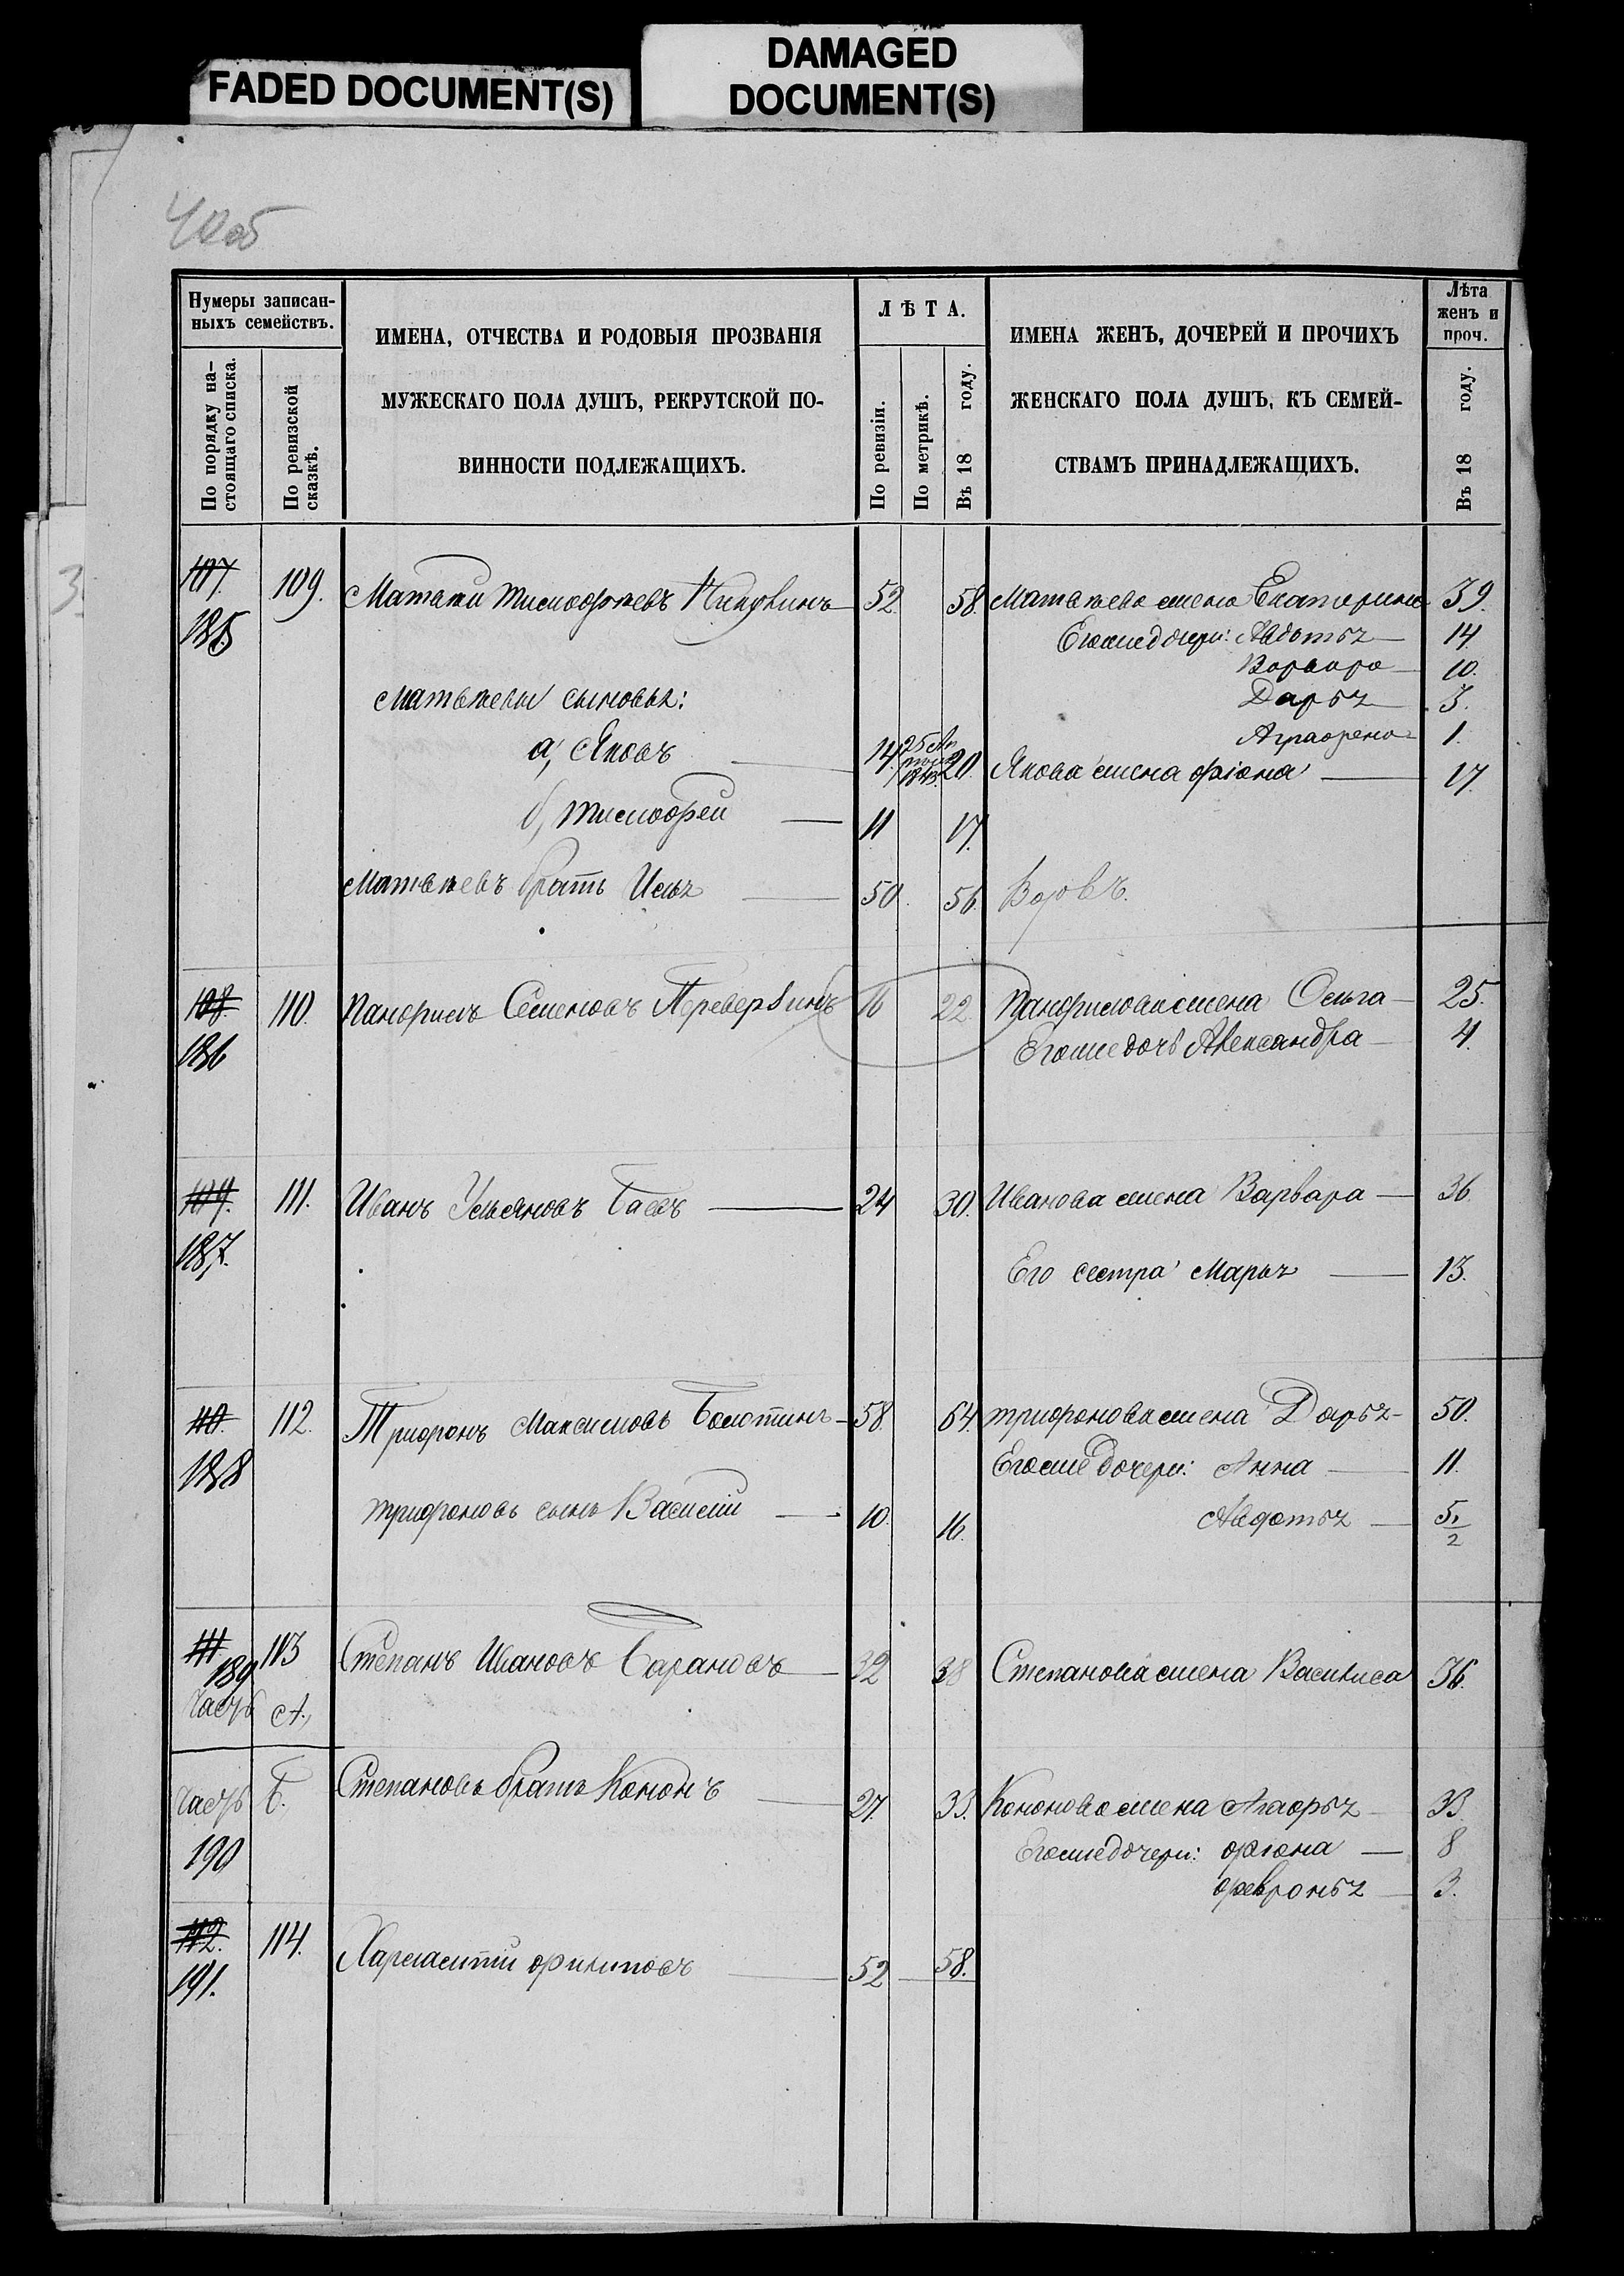 FADED DOCUMENT(S)
DAMAGED
DOCUMENT(S)
40об
Нумеры записан-
ныхъ семействъ.
По порядку на-
стоящаго списка.
По ревизской
сказкѣ.
ИМЕНА, ОТЧЕСТВА И РОДОВЫЯ ПРОЗВАНІЯ
МУЖЕСКАГО ПОЛА ДУШЪ, РЕКРУТСКОЙ ПО-
ВИННОСТИ ПОДЛЕЖАЩИХЪ.
ЛѢТА.
По ревизіи.
По метрикѣ.
Въ 18 году.
ИМЕНА ЖЕНЪ, ДОЧЕРЕЙ И ПРОЧИХЪ
ЖЕНСКАГО ПОЛА ДУШЪ, КЪ СЕМЕЙ-
СТВАМЪ ПРИНАДЛЕЖАЩИХЪ.
Лѣта
женъ и
проч.
Въ 18 году.
3
107. 109. Матвѣй Тимофѣевъ 52 58. Матвѣева жена Екатерина 39.
185 Его же дочери: Авдотья 14.
Варвара 10.
Матвѣевы сыновья: Дарья 3.
Аграфена 1.
а, Яковъ 14. 25 20. Якова жена Фіона 17.
б, Тимофей 11 17.
Матвѣевъ братъ Илья 50. 56.
108 110. Панфилъ Семеновъ Переверзинъ 16 22 Панфилова жена Ольга 25.
186 Его же дочь Александра 4.
109. 111. Иванъ Ульяновъ Баевъ 24 30. Иванова жена Варвара 36.
187. Его сестра Марья 13.
110. 112. Трифонъ Максимовъ Болотинъ 58. 64. Трифонова жена Дарья 50.
188 Его же дочери: Анна 11.
Трифоновъ сынъ Василій 10. 16. Авдотья 5 1/2
111 113 Степанъ Ивановъ Барановъ 32 38 Степанова жена Василиса 36.
189
Часть А.
Часть Б. Степановъ братъ Кононъ 27. 33. Кононова жена Агафья 33.
190 Его же дочери: Фіона 8
Февронья 3.
112. 114. Харлампій Филиповъ 52 58.
191.